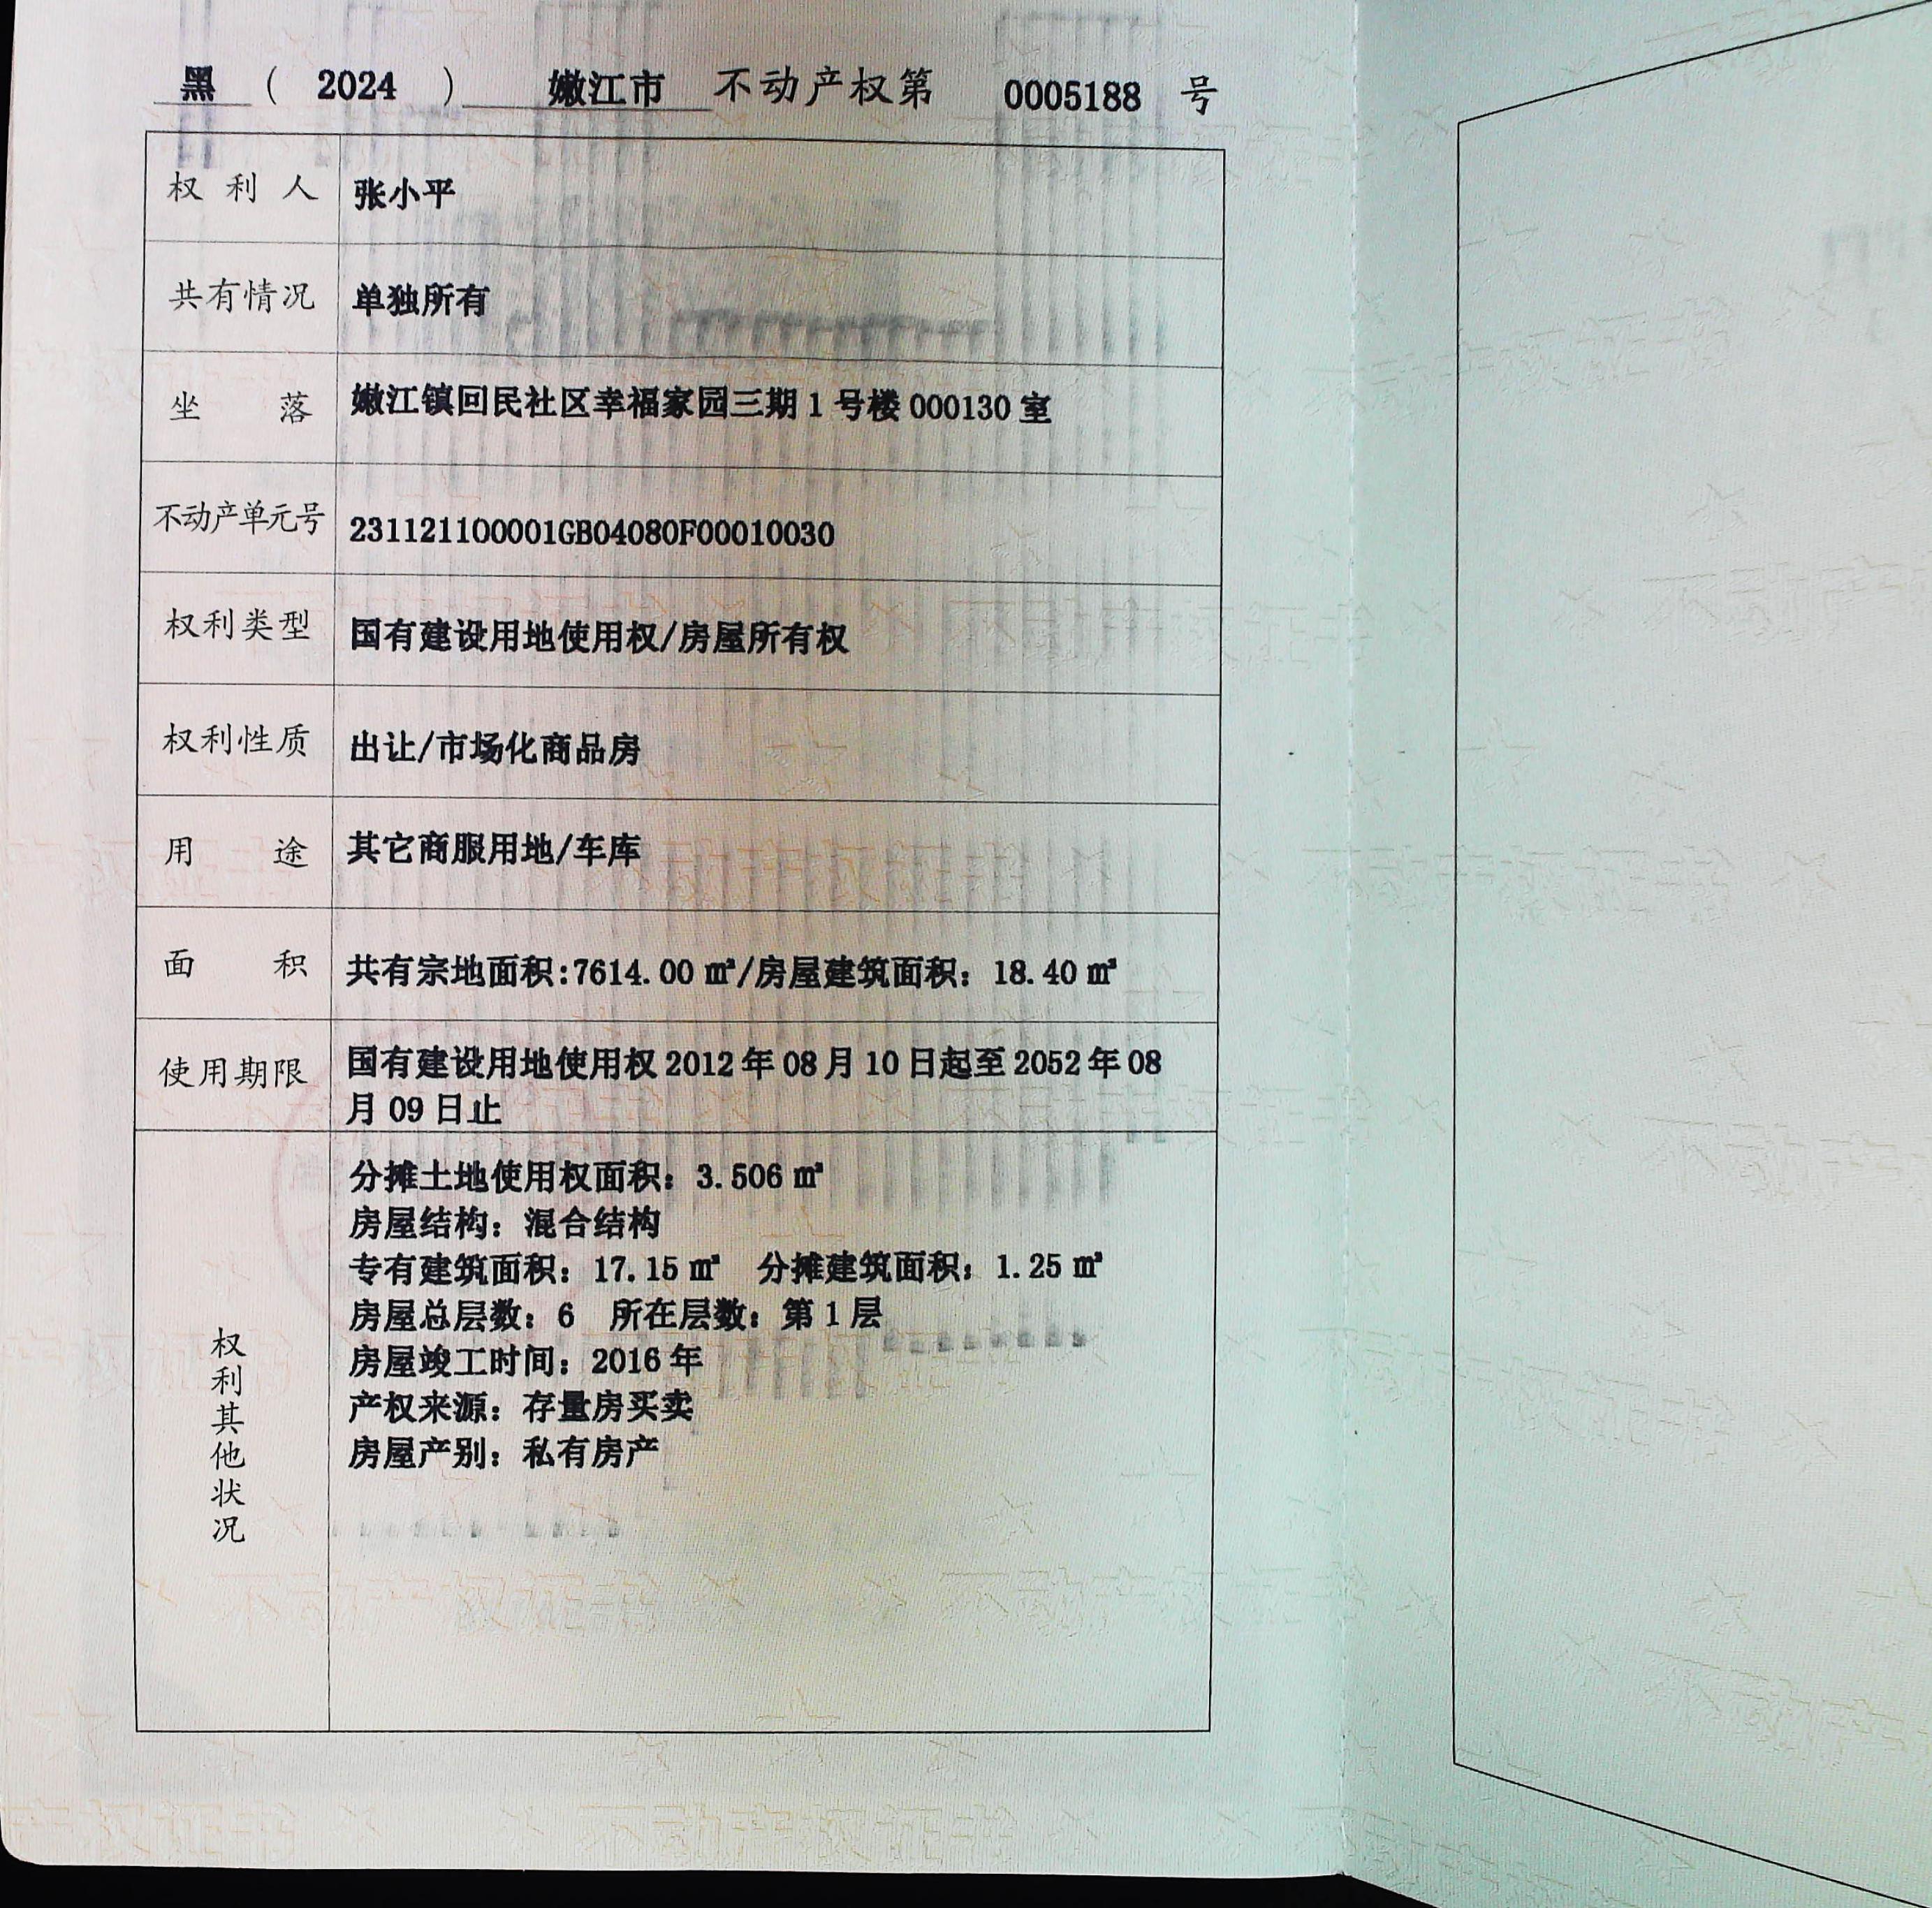 黑 ( 2024 ) 嫩江市 不动产权第 0005188 号
权利人 张小平
共有情况 单独所有
坐落 嫩江镇回民社区幸福家园三期1号楼000130室
不动产单元号 231121100001GB04080F00010030
权利类型 国有建设用地使用权/房屋所有权
权利性质 出让/市场化商品房
用途 其它商服用地/车库
面积 共有宗地面积:7614.00㎡/房屋建筑面积：18.40㎡
使用期限 国有建设用地使用权2012年08月10日起至2052年08
月09日止
权利其他状况
分摊土地使用权面积：3.506㎡
房屋结构：混合结构
专有建筑面积：17.15㎡ 分摊建筑面积：1.25㎡
房屋总层数：6 所在层数：第1层
房屋竣工时间：2016年
产权来源：存量房买卖
房屋产别：私有房产